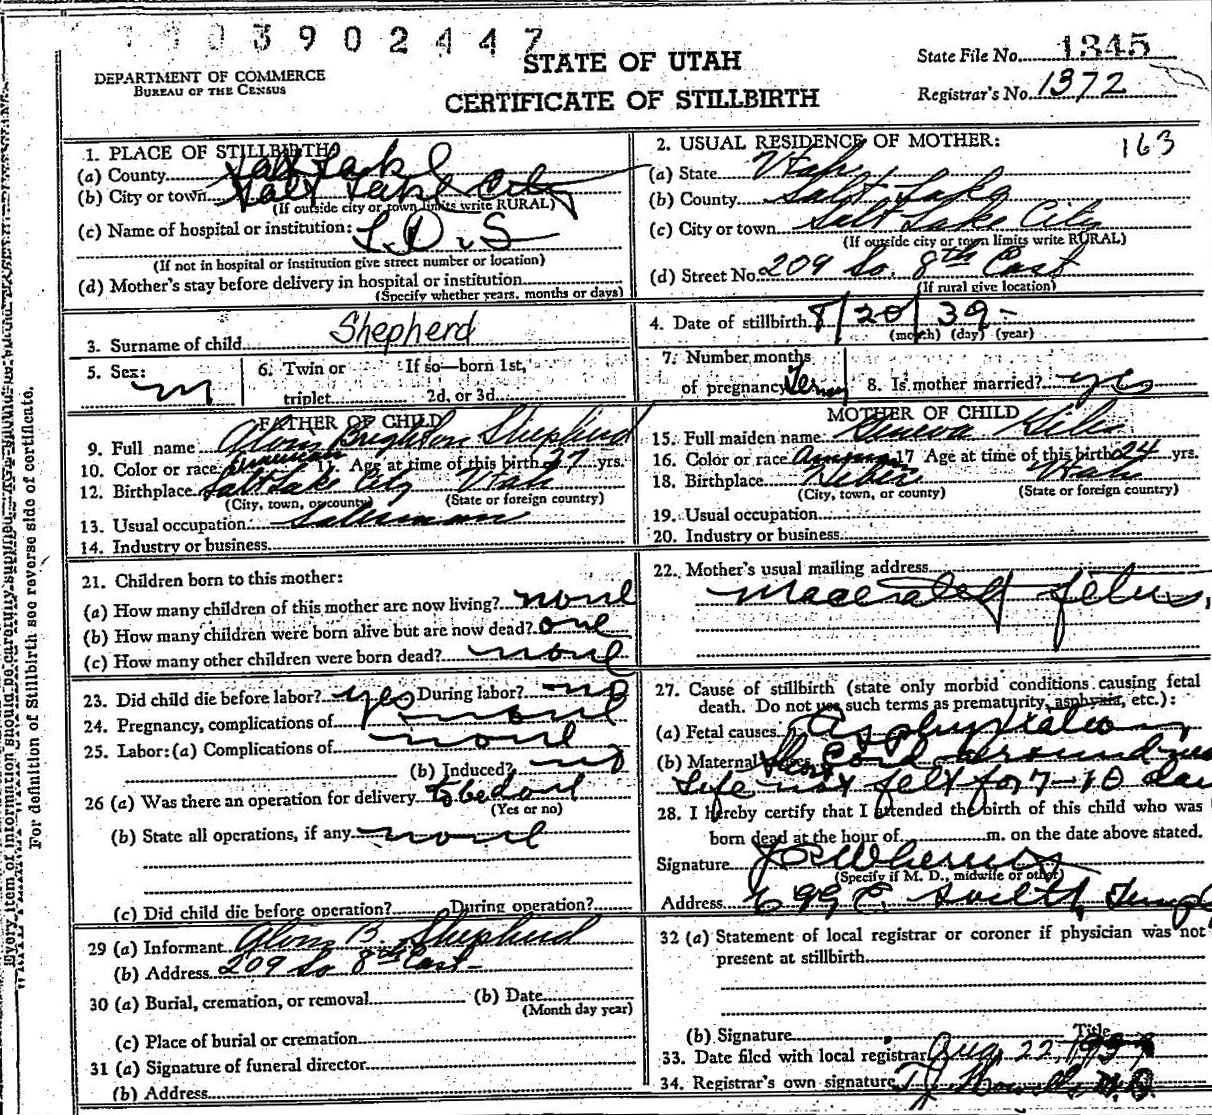 3902447
STATE OF UTAH
CERTIFICATE OF STILLBIRTH
DEPARTMENT OF COMMERCE
BUREAU OF THE CENSUS
State File No. 1345
Registrar's No. 1372
1. PLACE OF STILLBIRTH
(a) County Salt Lake
(b) City or town Salt Lake City
(If outside city or town limits write RURAL)
(c) Name of hospital or institution: L.D.S
(If not in hospital or institution give street number or location)
(d) Mother's stay before delivery in hospital or institution
(Specify whether years, months or days)
2. USUAL RESIDENCE OF MOTHER: 163
(a) State Utah
(b) County Salt Lake
(c) City or town Salt Lake City
(If outside city or town limits write RURAL)
(d) Street No. 209 So. 8th East
(If rural give location)
3. Surname of child Shepherd
4. Date of stillbirth 8/20/39-
(month) (day) (year)
5. Sex: m
6. Twin or triplet If so—born 1st, 2d, or 3d
7. Number months of pregnancy Term
8. Is mother married? yes
FATHER OF CHILD
9. Full name Brighton Shepherd
10. Color or race American 11. Age at time of this birth 37 yrs.
12. Birthplace Salt Lake City Utah
(City, town, or county) (State or foreign country)
13. Usual occupation Salesman
14. Industry or business
MOTHER OF CHILD
15. Full maiden name Geneva
16. Color or race 17 Age at time of this birth 24 yrs.
18. Birthplace Heber Utah
(City, town, or county) (State or foreign country)
19. Usual occupation
20. Industry or business
21. Children born to this mother:
(a) How many children of this mother are now living? none
(b) How many children were born alive but are now dead? one
(c) How many other children were born dead? none
22. Mother's usual mailing address
Macerated fetus.
23. Did child die before labor? yes During labor? no
24. Pregnancy, complications of none
25. Labor: (a) Complications of none
(b) Induced? no
26 (a) Was there an operation for delivery
(Yes or no)
(b) State all operations, if any none
(c) Did child die before operation? During operation?
27. Cause of stillbirth (state only morbid conditions causing fetal
death. Do not use such terms as prematurity, asphyxia, etc.):
(a) Fetal causes Asphyxiation
(b) Maternal causes Short Cord around
Life not felt for 7-10
28. I hereby certify that I attended the birth of this child who was
born dead at the hour of m. on the date above stated.
Signature
(Specify if M. D., midwife or other)
Address 699 E. South Temple
29 (a) Informant B. Shepherd
(b) Address 209 So 8th East
30 (a) Burial, cremation, or removal (b) Date
(Month day year)
(c) Place of burial or cremation
31 (a) Signature of funeral director
(b) Address
32 (a) Statement of local registrar or coroner if physician was not
present at stillbirth
(b) Signature Title
33. Date filed with local registrar Aug 22, 1939
34. Registrar's own signature T J Howells M.D
For definition of Stillbirth see reverse side of certificate.
Every item of information should be carefully supplied.